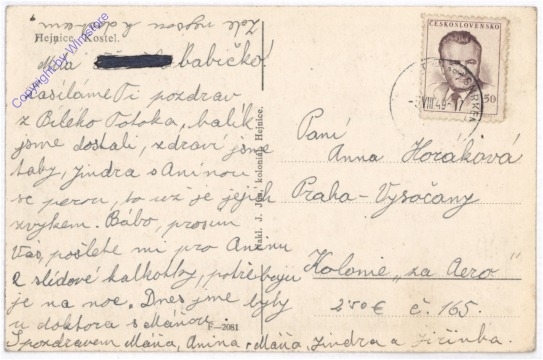 Hejnice. Kostel.
Milá babičko!
zasíláme Ti pozdrav
z Bílého Potoka, balík
jsme dostali, zdraví jsme
taky, Jindra s Aninou
se perou, to už je jejich
zvykem. Bábo, prosím
Vás, pošlete mi pro Aninu
2 slídové kalhotky, potřebuju
je na noc. Dnes jme byly
u doktora s Máňou.
S pozdravem Máňa, Anina, Máňa, Jindra a Jiřinka.
Nakl. J. koloniál, Hejnice.
F—2081
ČESKOSLOVENSKO
50
VIII.49
Paní
Anna Horáková
Praha - Vysočany
Kolonie „za Aero"
č. 165.
Copyright by Wimstore